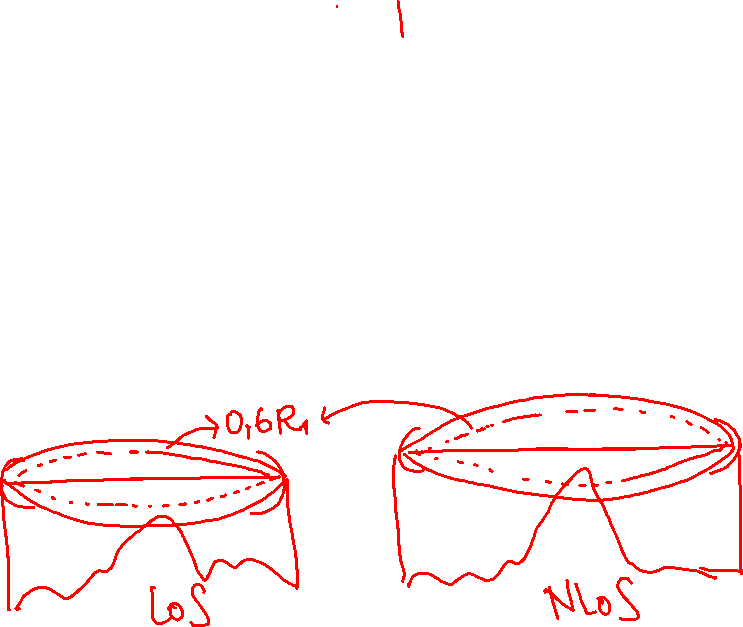 0,6R₁
LoS
NLoS